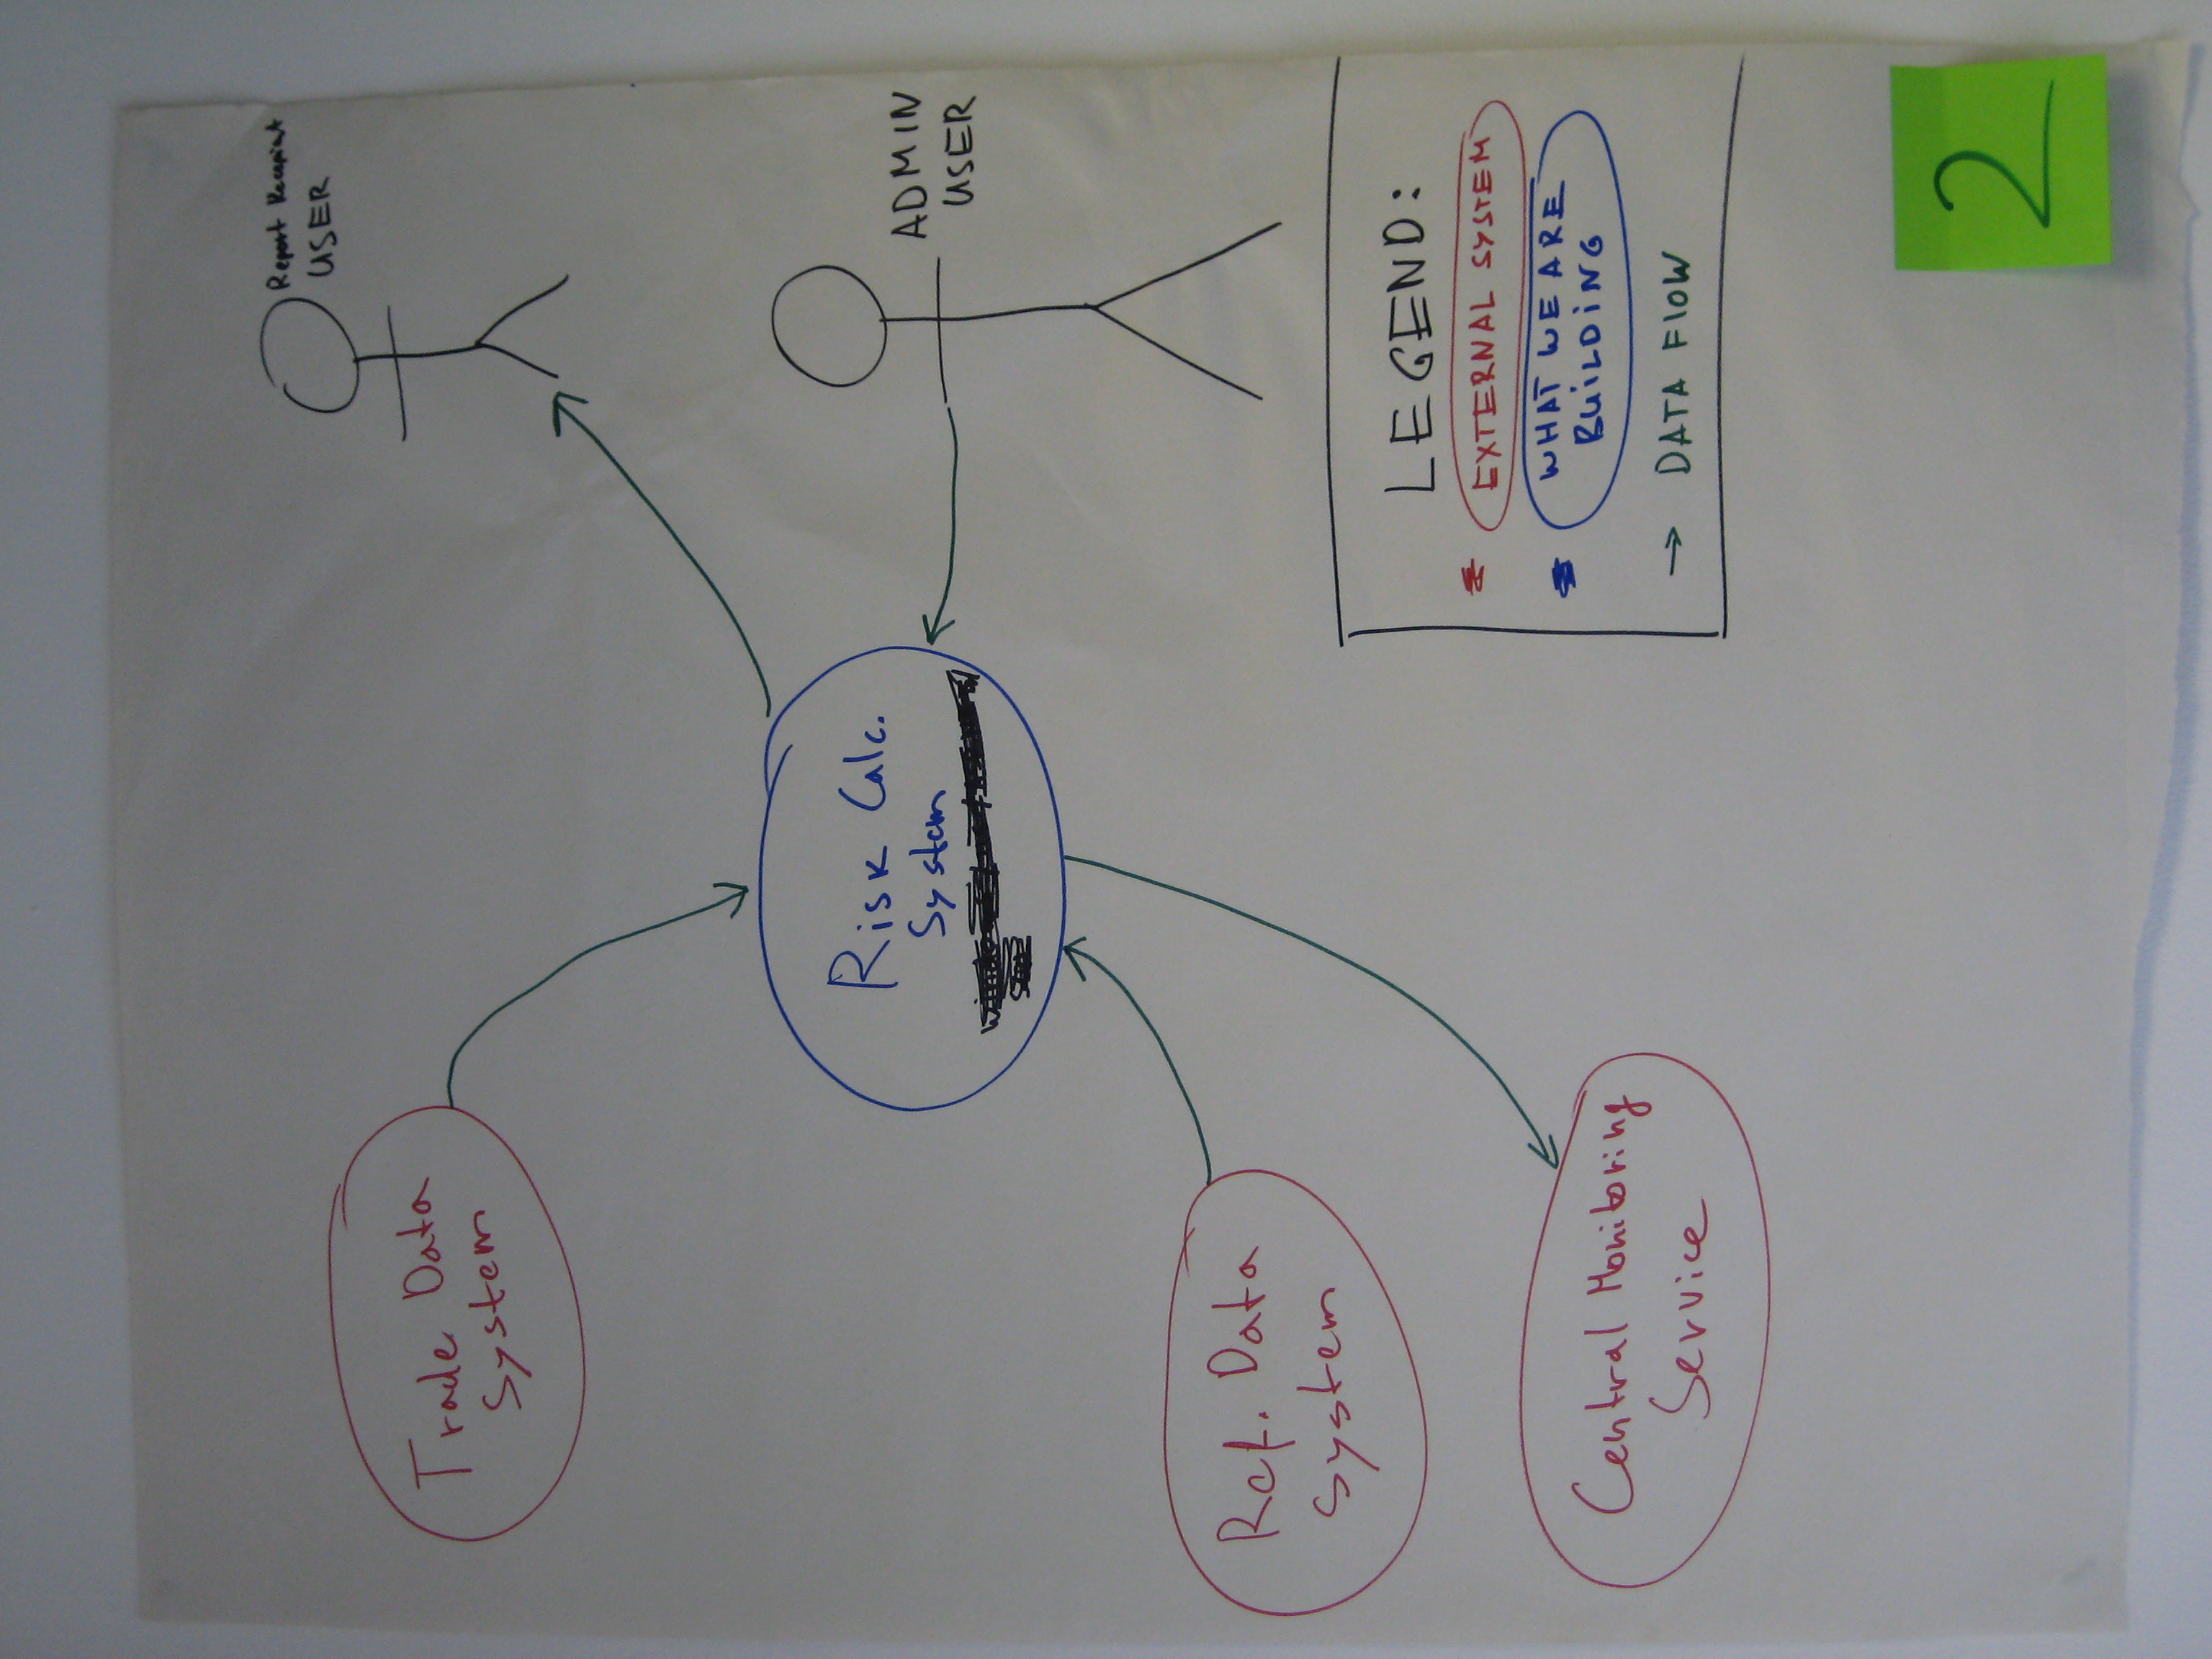 Report Recepient
USER
Trade Data
System
Risk Calc.
System
ADMIN
USER
Ref. Data
System
Central Monitoring
Service
LEGEND:
EXTERNAL SYSTEM
WHAT WE ARE
BUILDING
→ DATA FLOW
2